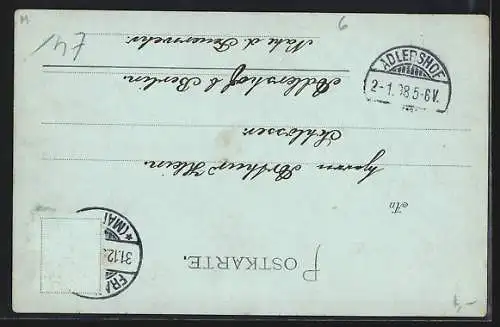 POSTKARTE.
An
Herrn Arthur Klein.
Schlosser
Adlershof b Berlin
Nahe d. Feuerwehr.
ADLERSHOF
2-1.98.5-6V.
FRA
31.12.
*(MAI
6
M